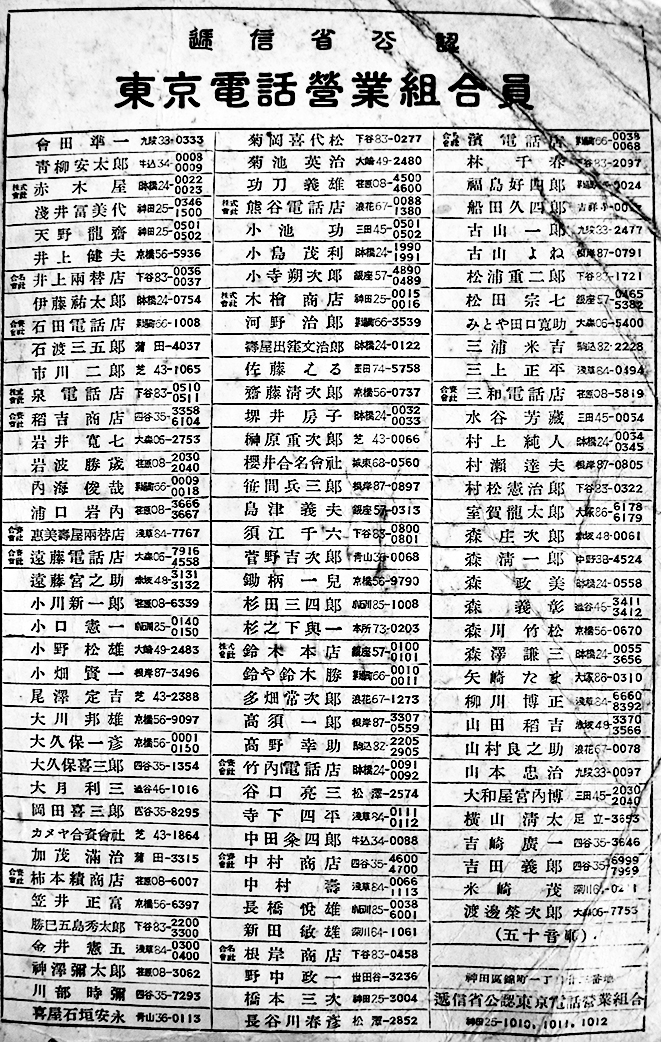 遞信省公認
東京電話營業組合員
會田準一 九段33-0333
青柳安太郎 牛込34-0008 0009
株式會社 赤木屋 日本橋24-0022 0023
淺井富美代 神田25-0346 1500
天野龍齋 神田25-0501 0502
井上健夫 京橋56-5936
合名會社 井上兩替店 下谷83-0036 0037
伊藤祐太郎 日本橋24-0754
合資會社 石田電話店 66-1008
石渡三五郎 蒲田-4037
市川二郎 芝43-1065
株式會社 泉電話店 下谷83-0510 0511
合資會社 稻吉商店 四谷35-3358 6104
岩井寬七 大森06-2753
岩波勝歲 荏原08-2030 2040
內海俊哉 66-0009 0018
浦口岩內 荏原08-3666 3667
合資會社 惠美壽屋兩替店 淺草84-7767
合名會社 遠藤電話店 大森06-7916 4558
遠藤宮之助 赤坂48-3131 3132
小川新一郎 荏原08-6339
小口憲一 小石川85-0140 0150
小野松雄 大崎49-2483
小畑賢一 根岸87-3496
尾澤定吉 芝43-2388
大川邦雄 京橋56-9097
大久保一彥 京橋56-0001 0150
大久保喜三郎 四谷35-1354
大月利三 澁谷46-1016
岡田喜三郎 四谷35-8295
カメヤ合資會社 芝43-1864
加茂滿治 蒲田-3315
合資會社 柿本績商店 荏原08-6007
笠井正富 京橋56-6397
勝巳五島秀太郎 下谷83-2200 3300
金井憲五 淺草84-0300 0400
神澤彌太郎 荏原08-3062
川部時彌 四谷35-7293
喜屋石垣安永 青山36-0113
菊岡喜代松 下谷83-0277
菊池英治 大崎49-2480
功刀義雄 荏原08-4500 4600
株式會社 熊谷電話店 浪花67-0088 1380
小池功 三田45-0501 0502
小島茂利 日本橋24-1990 1991
小寺朔次郎 銀座57-4890 0489
株式會社 木檜商店 神田25-0015 0016
河野治郎 66-3539
壽屋出窪文治郎 日本橋24-0122
佐藤える 王田74-5758
齋藤淸次郎 京橋56-0737
堺井房子 日本橋24-0032 0033
榊原重次郎 芝43-0066
櫻井合名會社 城東68-0560
笹間兵三郎 根岸87-0897
島津義夫 銀座57-0313
須江千六 下谷83-0800 0801
菅野吉次郎 青山36-0068
鋤柄一兒 京橋56-9790
杉田三四郎 小石川85-1008
杉之下與一 本所73-0203
株式會社 鈴木本店 銀座57-0100 0101
鈴や鈴木勝 66-0010 0011
多畑常次郎 浪花67-1273
高須一郎 根岸87-3307 0559
高野幸助 駒込82-2205 2905
合資會社 竹內電話店 日本橋24-0091 0092
谷口亮三 松澤-2574
寺下四平 淺草84-0111 0112
中田粂四郎 牛込34-0088
合資會社 中村商店 四谷35-4600 4700
中村壽 淺草84-0066 1113
長橋悅雄 小石川85-0038 6001
新田敏雄 深川64-1061
合名會社 根岸商店 下谷83-0458
野中政一 世田谷-3236
橋本三次 神田25-3004
長谷川春彥 松澤-2852
合名會社 濱電話店 66-0038 0068
林千春 下谷83-2097
福島好四郎 0024
船田久四郎 吉祥寺
古山一郎 九段33-2477
古山よね 根岸87-0791
松浦重二郎 下谷83-1721
松田宗七 銀座57-0465 5382
みとや田口寬助 大森06-5400
三浦米吉 駒込82-2228
三上正平 淺草84-0494
合資會社 三和電話店 荏原08-5819
水谷芳藏 三田45-0054
村上純人 日本橋24-0034 0345
村瀨達夫 根岸87-0805
村松憲治郎 下谷83-0322
室賀龍太郎 大塚86-6178 6179
森庄次郎 赤坂48-0061
森淸一郎 中野38-4524
森政美 日本橋24-0558
森義彰 澁谷46-3411 3412
森川竹松 京橋56-0670
森澤謙三 日本橋24-0055 3656
矢崎たま 大塚86-0310
柳川博正 淺草84-6660 8392
山田稻吉 赤坂48-3370 3566
山村良之助 浪花67-0078
山本忠治 九段33-0097
大和屋宮內博 三田45-2030 2040
橫山淸太 足立-3653
吉崎廣一 四谷35-3646
吉田義郎 四谷35-6999 7999
米崎茂 深川64-
渡邊榮次郎 大森06-7753
(五十音順)
神田區錦町一丁目 番地
遞信省公認東京電話營業組合
神田25-1010, 1011, 1012